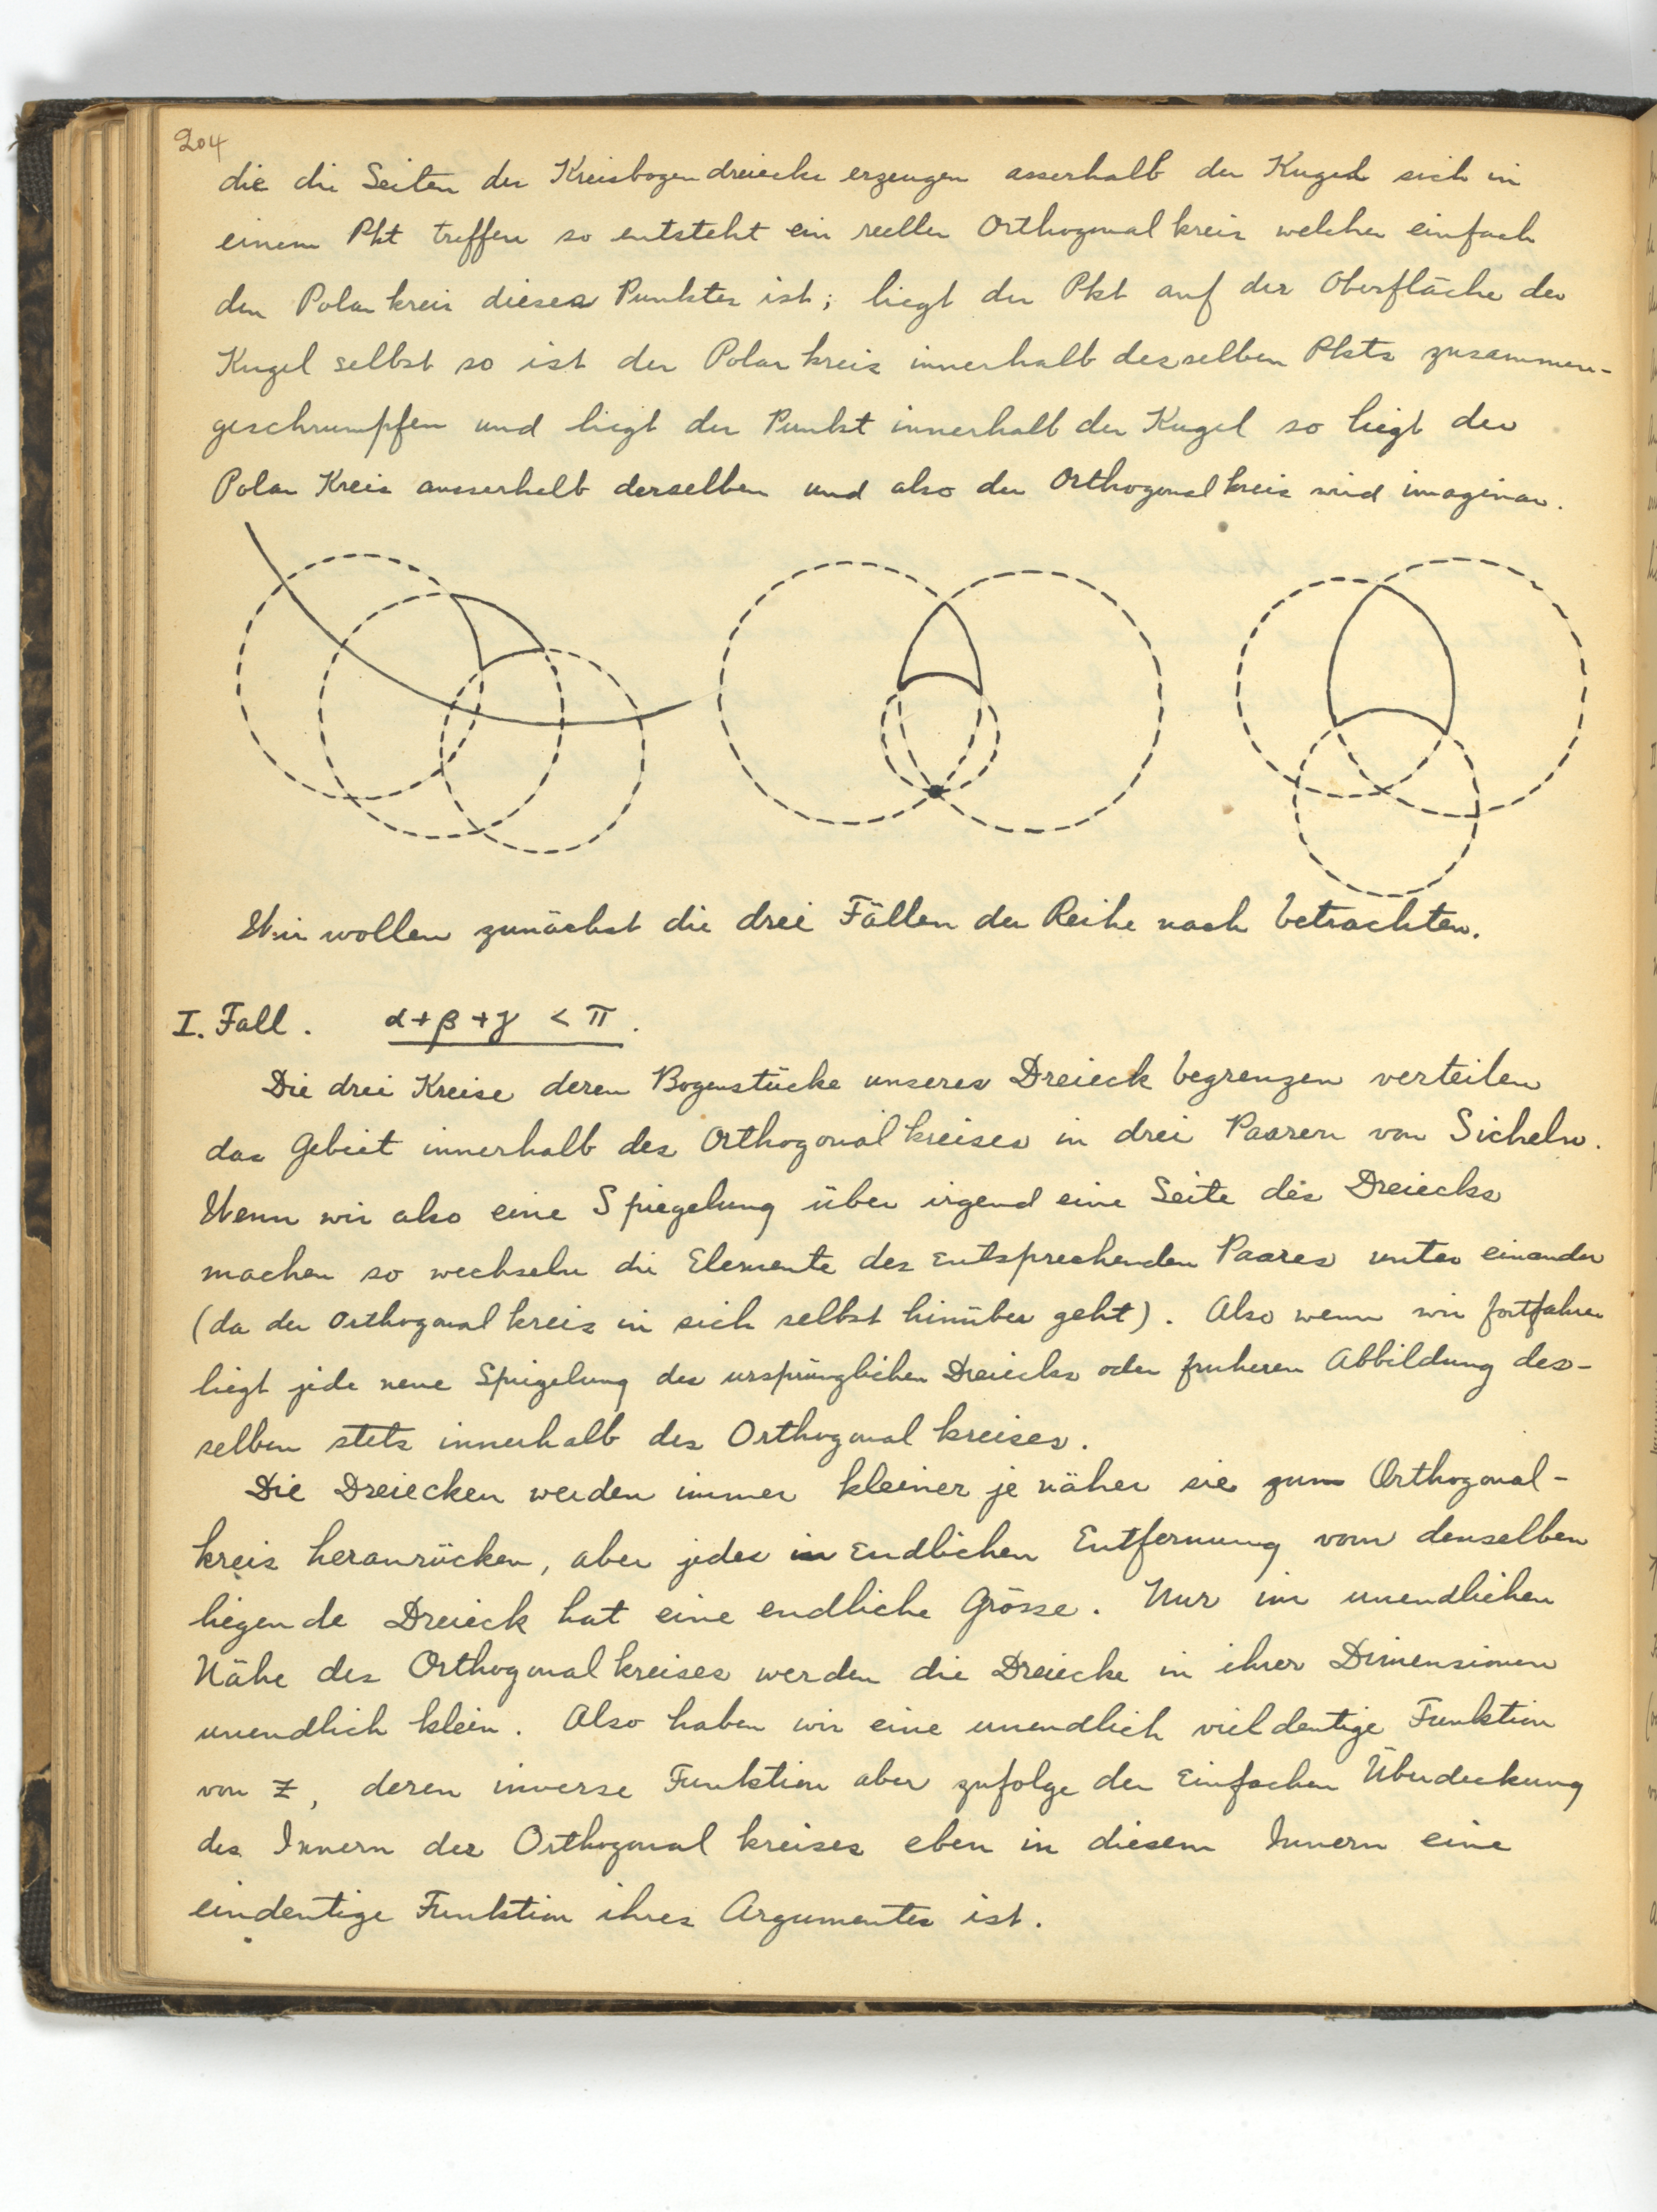 204
die die Seiten der Kreisbogendreiecke erzeugen asserhalb der Kugel sich in
einem Pkt treffen so entsteht ein reeller Orthogonalkreis welcher einfach
den Polarkreis dieses Punktes ist; liegt der Pkt auf der Oberfläche der
Kugel selbst so ist der Polarkreis innerhalb desselben Pkts zusammen-
geschrumpfen und liegt der Punkt innerhalb der Kugel so liegt der
Polar Kreis ausserhalb derselben und also der Orthogonalkreis wird imaginar.
Wir wollen zunächst die drei Fällen der Reihe nach betrachten.
I. Fall. α+β+γ < π.
Die drei Kreise deren Bogenstücke unseres Dreieck begrenzen verteilen
das Gebiet innerhalb des Orthogonalkreises in drei Paaren von Sicheln.
Wenn wir also eine Spiegelung über irgend eine Seite des Dreiecks
machen so wechseln die Elemente des entsprechenden Paares unter einander
(da der Orthogonalkreis in sich selbst hinüber geht). Also wenn wir fortfahren
liegt jede neue Spiegelung des ursprünglichen Dreiecks oder fruheren Abbildung des-
selben stets innerhalb des Orthogonalkreises.
Die Dreiecken werden immer kleiner je näher sie zum Orthogonal-
kreis heranrücken, aber jedes in Endlichen Entfernung vom denselben
liegende Dreieck hat eine endliche Grösse. Nur im unendlichen
Nähe des Orthogonalkreises werden die Dreiecke in ihrer Dimensionen
unendlich klein. Also haben wir eine unendlich vieldeutige Funktion
von z, deren inverse Funktion aber zufolge der Einfachen Überdeckung
des Innern des Orthogonalkreises eben in diesem Innern eine
eindeutige Funktion ihres Argumentes ist.